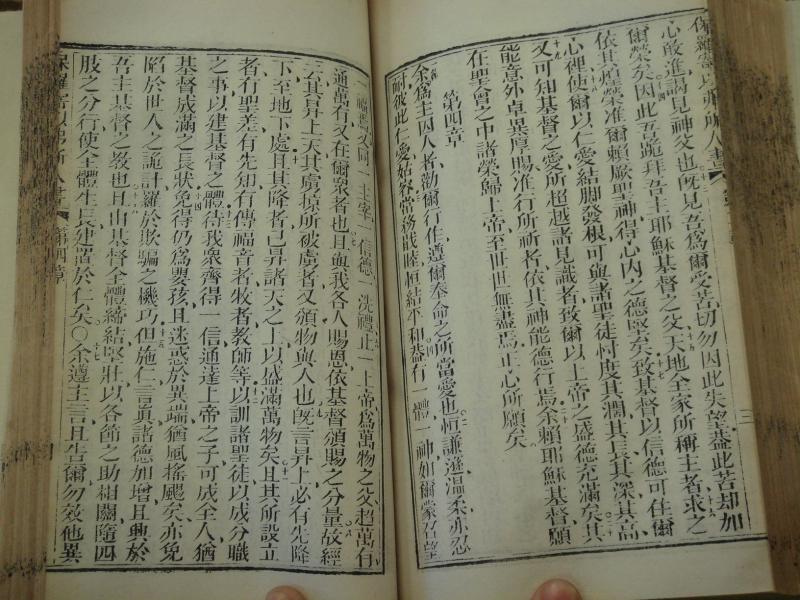 保羅寄以弗所人書 第三章
心敢進謁見神父也旣見吾爲爾受苦切勿因此失望蓋此苦却加
爾榮矣因此吾跪拜吾主耶穌基督之父天地全家所稱主者求之
依其煌榮准爾賴厥聖神得心內之德堅矣致基督以信德可住爾
心裡使爾以仁愛結脚發根可與諸聖徒忖度其濶其長其深其高
又可知基督之愛所超越諸見識者致爾以上帝之盛德充滿矣其
能意外卓異厚賜准行所祈者依其神能德行焉余賴耶穌基督願
在聖會之中諸榮歸上帝至世世無盡焉正心所願矣
第四章
余爲主囚人者勸爾行住遵爾奉命之所當愛也恒謙遜温柔亦忍
耐彼此仁愛姑容常務戢睦恒結平和蓋有一體一神如爾蒙召望
一福焉又同一主宰一信德一洗禮止一上帝爲萬物之父超萬有
通萬有又在爾衆者也且與我各人賜恩依基督頒賜之分量故經
云其昇上天其虜掠所被虜者又頒物與人也旣言昇上必有先降
下至地下處且其降者已昇諸天之上以盛滿萬物矣且其所設立
者有聖差有先知有傳福音者牧者教師等以訓諸聖徒以成分職
之事以建基督之體待我衆齊得一信通達上帝之子可成全人猶
基督成滿之長狀免得仍爲嬰孩且迷惑於異端猶風搖颺矣亦免
陷於世人之詭計羅於欺騙之機巧但施仁言眞諸德加增且興於
吾主基督之教也且由基督全體締結堅壯以各節之助相關隨四
肢之分行使全體生長建置於仁矣〇余遵主言且告爾勿效他異
保羅寄以弗所人書 第四章